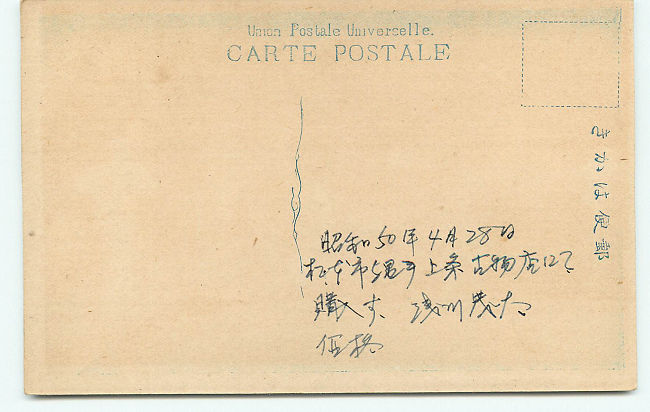 Union Postale Universelle.
CARTE POSTALE
きかは便郵
昭和50年4月28日
松本市縄手上条古物店にて
購入す、浅川
価格